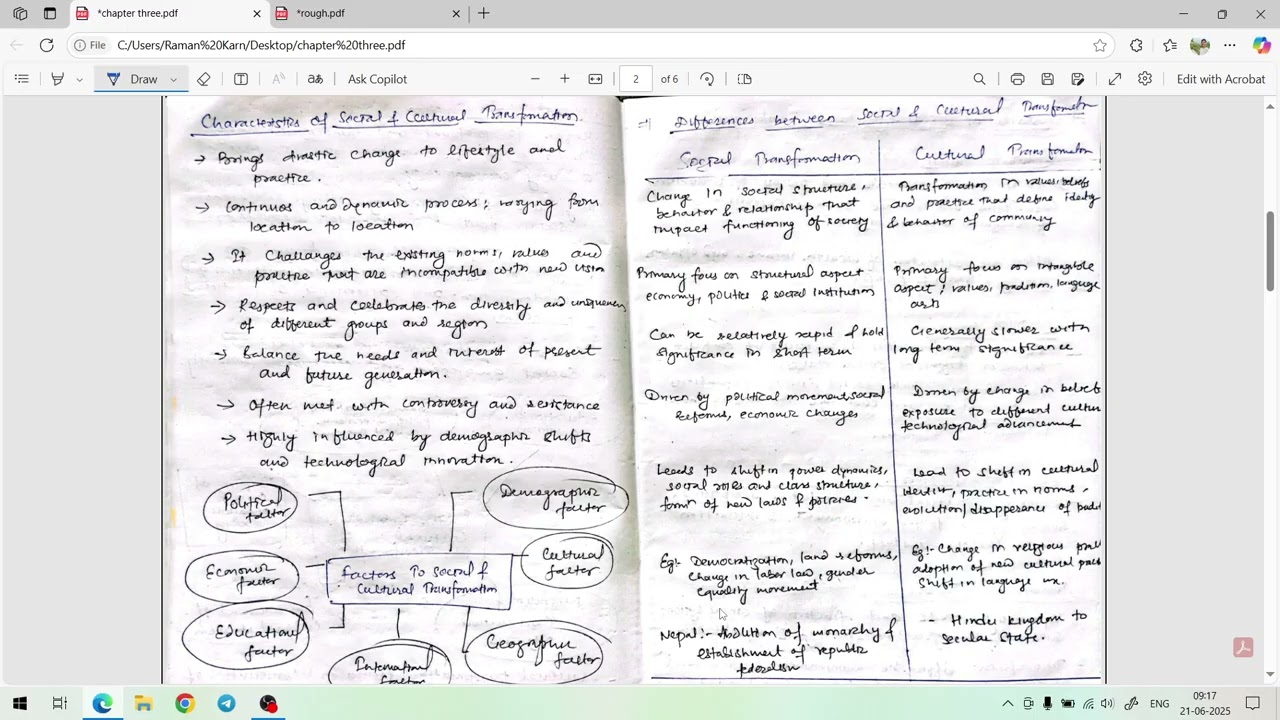 *chapter three.pdf
*rough.pdf
File
C:/Users/Raman%20Karn/Desktop/chapter%20three.pdf
Draw
Ask Copilot
2 of 6
Edit with Acrobat
Characteristics of Social & Cultural Transfomation
→ Brings drastic change to lifestyle and
practice.
→ Continuos and Dynamic process; varying from
location to location
→ It Challanges the existing norms, values and
practice that are incompatible with new vision
→ Respects and Celebrates the diversity and uniquenes
of different groups and region
→ Balance the needs and interest of present
and future generation.
→ Often met with controversy and resistance
→ Highly influenced by demographic shifts
and technological innovation.
Political
factor
Demographic
factor
Economic
factor
Cultural
factor
Factors To Social &
Cultural Transfomation
Education
factor
Geographic
factor
factor
Differences between Social & Cultural Transfomation
Social Transfomation
Cultural Transfomation
Change in social structure,
behavior & relationship that
impact functioning of society
Transfomation in values, beliefs
and practice that define
& behavior of community
Primary focus on structural aspect
economy, politics & social institution
Primary focus on intangible
aspect; values, tradition, language
arts
Can be relatively rapid & hold
significance in short term
Generally slower with
long term significance
Driven by political movement, social
reforms, economic changes
Driven by change in beliefs
exposure to different cultur
technological advancement
Leads to shift in power dynamics,
social roles and class structure,
formn of new laws & policies.
Lead to shift in cultural
identity, practice in norms,
evolution/disapperance of
Eg:- Democratization, land reforms,
change in labor law, gender
equality movement
Eg:- Change in religious
adoption of new cultural
shift in language
Nepal:- Abolution of monarchy &
establishment of republic
federalism
- Hindu Kingdom to
Secular State.
ENG
09:17
21-06-2025